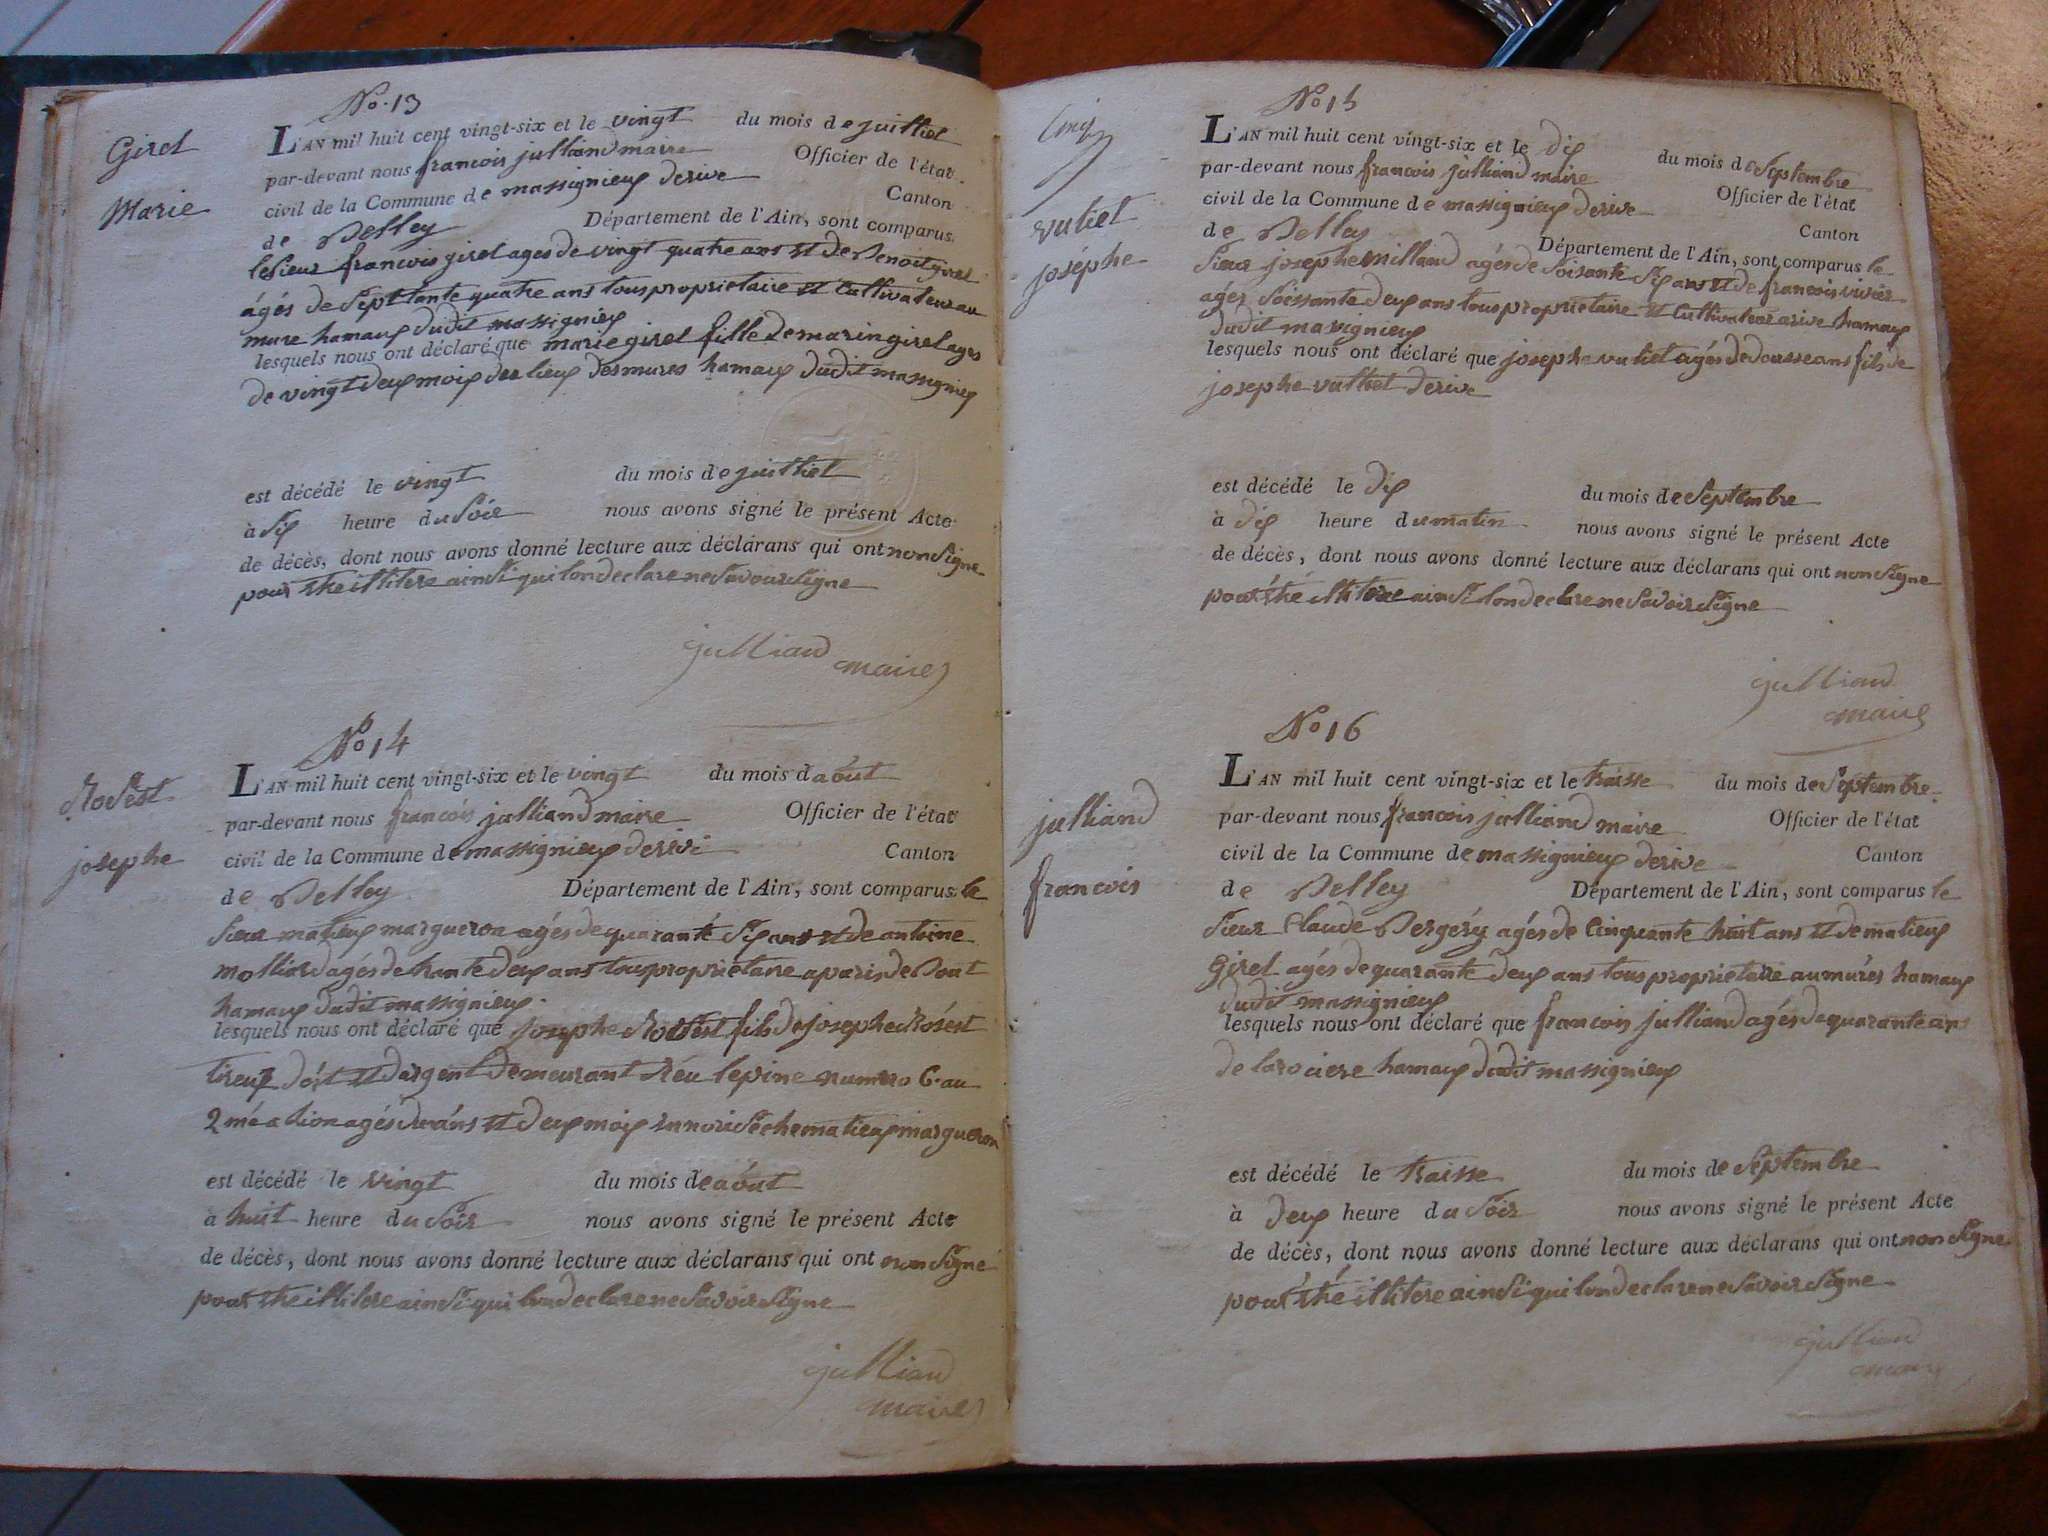 No. 13
Girel
Marie
L'AN mil huit cent vingt-six et le vingt du mois de juilliet
par-devant nous francois julliand maire Officier de l'état
civil de la Commune de massignieux derive Canton
de Belley Département de l'Ain, sont comparus
le sieur francois girel ages de vingt quatre ans et de Benoit girel
agés de septtante quatre ans tous proprietaire et Cultivateur au
mure hamaux dudit massignieux
lesquels nous ont déclaré que marie girel fille de marin girel ages
de vingt deux mois des lieux des mures hamaux dudit massignieux
est décédé le vingt du mois de juilliet
à six heure du soir nous avons signé le présent Acte
de décès, dont nous avons donné lecture aux déclarans qui ont non signe
pour être illitere ainsi qui lon declare ne savoir signe
julliand
maire
No 14
Rosest
josephe
L'AN mil huit cent vingt-six et le vingt du mois d août
par-devant nous francois julliand maire Officier de l'état
civil de la Commune de massignieux derive Canton
de Belley Département de l'Ain, sont comparus le
sieur matieux margueron agés de quarante six ans et de antoine
molliard agés de trante deux ans tous proprietaire a paris de Bout
hamaux dudit massignieux
lesquels nous ont déclaré que josephe Rosest fils de josephe Rosest
tireur d'or et d'argent demeurant lepine numero 6 au
2 mé a lion agés et deux mois en che matieux margueron
est décédé le vingt du mois de août
à huit heure du soir nous avons signé le présent Acte
de décès, dont nous avons donné lecture aux déclarans qui ont non signe
pour être illitere ainsi qui lon declare ne savoir signe
julliand
maire
No 15
Cinq
vutiet
joséphe
L'AN mil huit cent vingt-six et le dix du mois de septembre
par-devant nous francois julliand maire Officier de l'état
civil de la Commune de massignieux derive Canton
de Belley Département de l'Ain, sont comparus le
sieur josephe milliand agés de soisante six ans et de francois vivier
agés soissante deux ans tous proprietaire et Cultivateur a rive hamaux
dudit massignieux
lesquels nous ont déclaré que josephe vutiet agés de dousse ans fils de
josephe vuthiet derive
est décédé le dix du mois de septembre
à dix heure du matin nous avons signé le présent Acte
de décès, dont nous avons donné lecture aux déclarans qui ont non signe
pour être illitere ainsi lon declare ne savoir signe
julliand
maire
No 16
julliand
francois
L'AN mil huit cent vingt-six et le traisse du mois de septembre
par-devant nous francois julliand maire Officier de l'état
civil de la Commune de massignieux derive Canton
de Belley Département de l'Ain, sont comparus le
sieur Claude Bergéry agés de Cinquante huit ans et de matieux
Girel agés de quarante deux ans tous proprietaire au mures hamaux
dudit massignieux
lesquels nous ont déclaré que francois julliand agés de quarante ans
de larociere hamaux dudit massignieux
est décédé le traisse du mois de septembre
à deux heure du soir nous avons signé le présent Acte
de décès, dont nous avons donné lecture aux déclarans qui ont non signe
pour être illitere ainsi qui lon declare ne savoir signe
julliand
maire